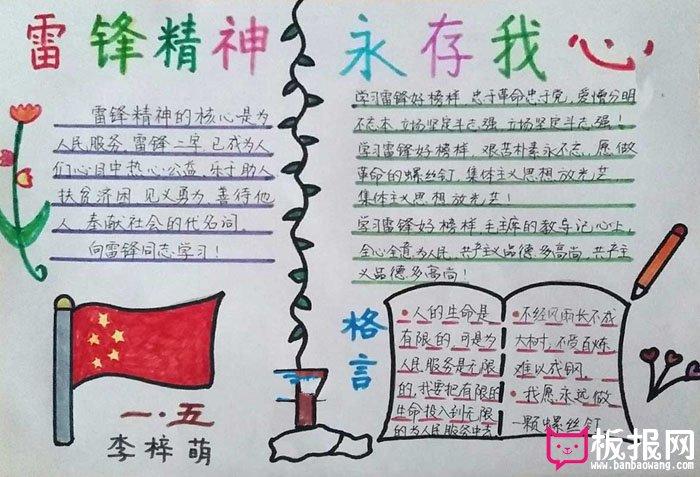 雷锋精神 永存我心
雷锋精神的核心是为
人民服务。雷锋二字,已成为人
们心目中热心公益、乐于助人、
扶贫济困、见义勇为、善待他
人、奉献社会的代名词。
向雷锋同志学习!
学习雷锋好榜样,忠于革命忠于党,爱憎分明
不忘本,立场坚定斗志强,立场坚定斗志强!
学习雷锋好榜样,艰苦朴素永不忘,愿做
革命的螺丝钉,集体主义思想放光芒,
集体主义思想放光芒!
学习雷锋好榜样,毛主席的教导记心上,
全心全意为人民,共产主义品德多高尚,共产主
义品德多高尚!
格言
人的生命是
有限的,可是为
人民服务是无限
的,我要把有限的
生命投入到无限
的为人民服务中去
不经风雨长不成
大树,不受百炼
难以成钢。
我愿永远做
一颗螺丝钉。
一·五
李梓萌
板报网
www.banbaowang.com